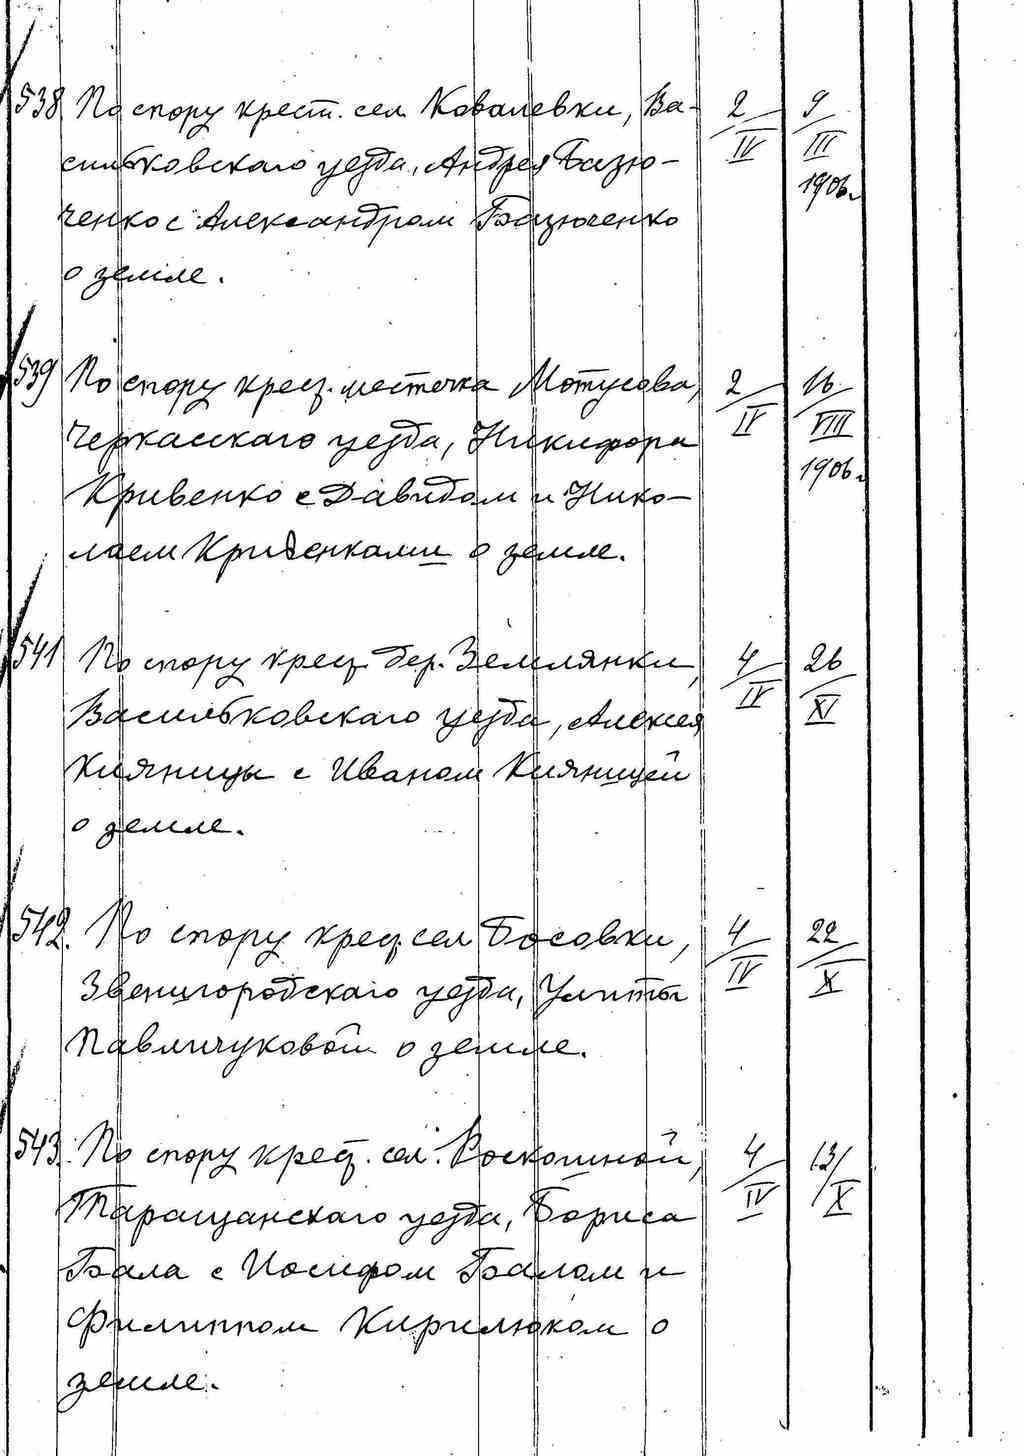 538 По спору крест. сел. Ковалевки, Ва- 2/IV 9/III
сильковскаго уезда, Андрея Базю- 1906г.
ченко с Александром Базюченко
о земле.
539 По спору крест. местечка Мотусова, 2/IV 16/VIII
Черкасскаго уезда, Никифора 1906г.
Кривенко с Давидом и Нико-
лаем Кривенками о земле.
541 По спору крест. дер. Землянки, 4/IV 26/XI
Васильковскаго уезда, Алексея
Кияницы с Иваном Кияницей
о земле.
542. По спору крест. сел. Босовки, 4/IV 22/X
Звенигородскаго уезда, Улиты
Павличуковой о земле.
543. По спору крест. сел. Роскошной, 4/IV 13/X
Таращанскаго уезда, Бориса
Бала с Иосифом Балом и
Филиппом Кирилюком о
земле.